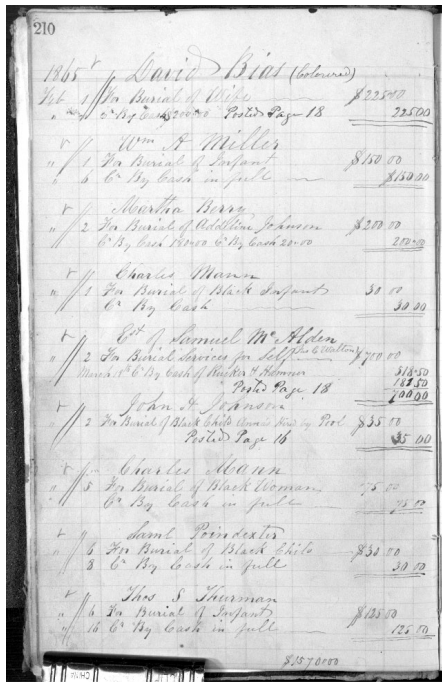 210
1865 David Bias (Colored)
Feb 1 For Burial of Wife $225.00
" " Cr By Cash $200.00 Posted Page 18 225.00
Wm A Miller
" 1 For Burial of Infant $150.00
" 6 Cr By Cash in full $150.00
Martha Berry
" 2 For Burial of Addeline Johnson $200.00
Cr By Cash 180.00 Cr By Cash 20.00 200.00
Charles Mann
" 1 For Burial of Black Infant 30.00
Cr By Cash 30.00
Est of Samuel McAlden
" 2 For Burial Services for Self $700.00
March 18th Cr By Cash of 518.50
Posted Page 18 181.50
700.00
John A Johnson
" 2 For Burial of Black Child by Pool $35.00
Posted Page 16 35.00
Charles Mann
" 5 For Burial of Black Woman 75.00
Cr By Cash in full 75.00
Saml Poindexter
" 6 For Burial of Black Child $30.00
8 Cr By Cash in full 30.00
Thos S Thurman
" 6 For Burial of Infant $125.00
" 16 Cr By Cash in full 125.00
$1570.00